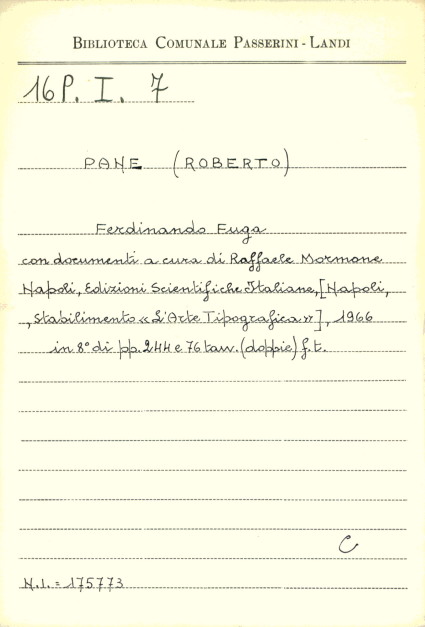 BIBLIOTECA COMUNALE PASSERINI - LANDI
16 P. I. 7
PANE (ROBERTO)
Ferdinando Fuga
con documenti a cura di Raffaele Mormone
Napoli, Edizioni Scientifiche Italiane, [Napoli,
, Stabilimento «L'Arte Tipografica»], 1966
in 8° di pp. 244 e 76 tav. (doppie) f.t.
C
N.I. = 175773